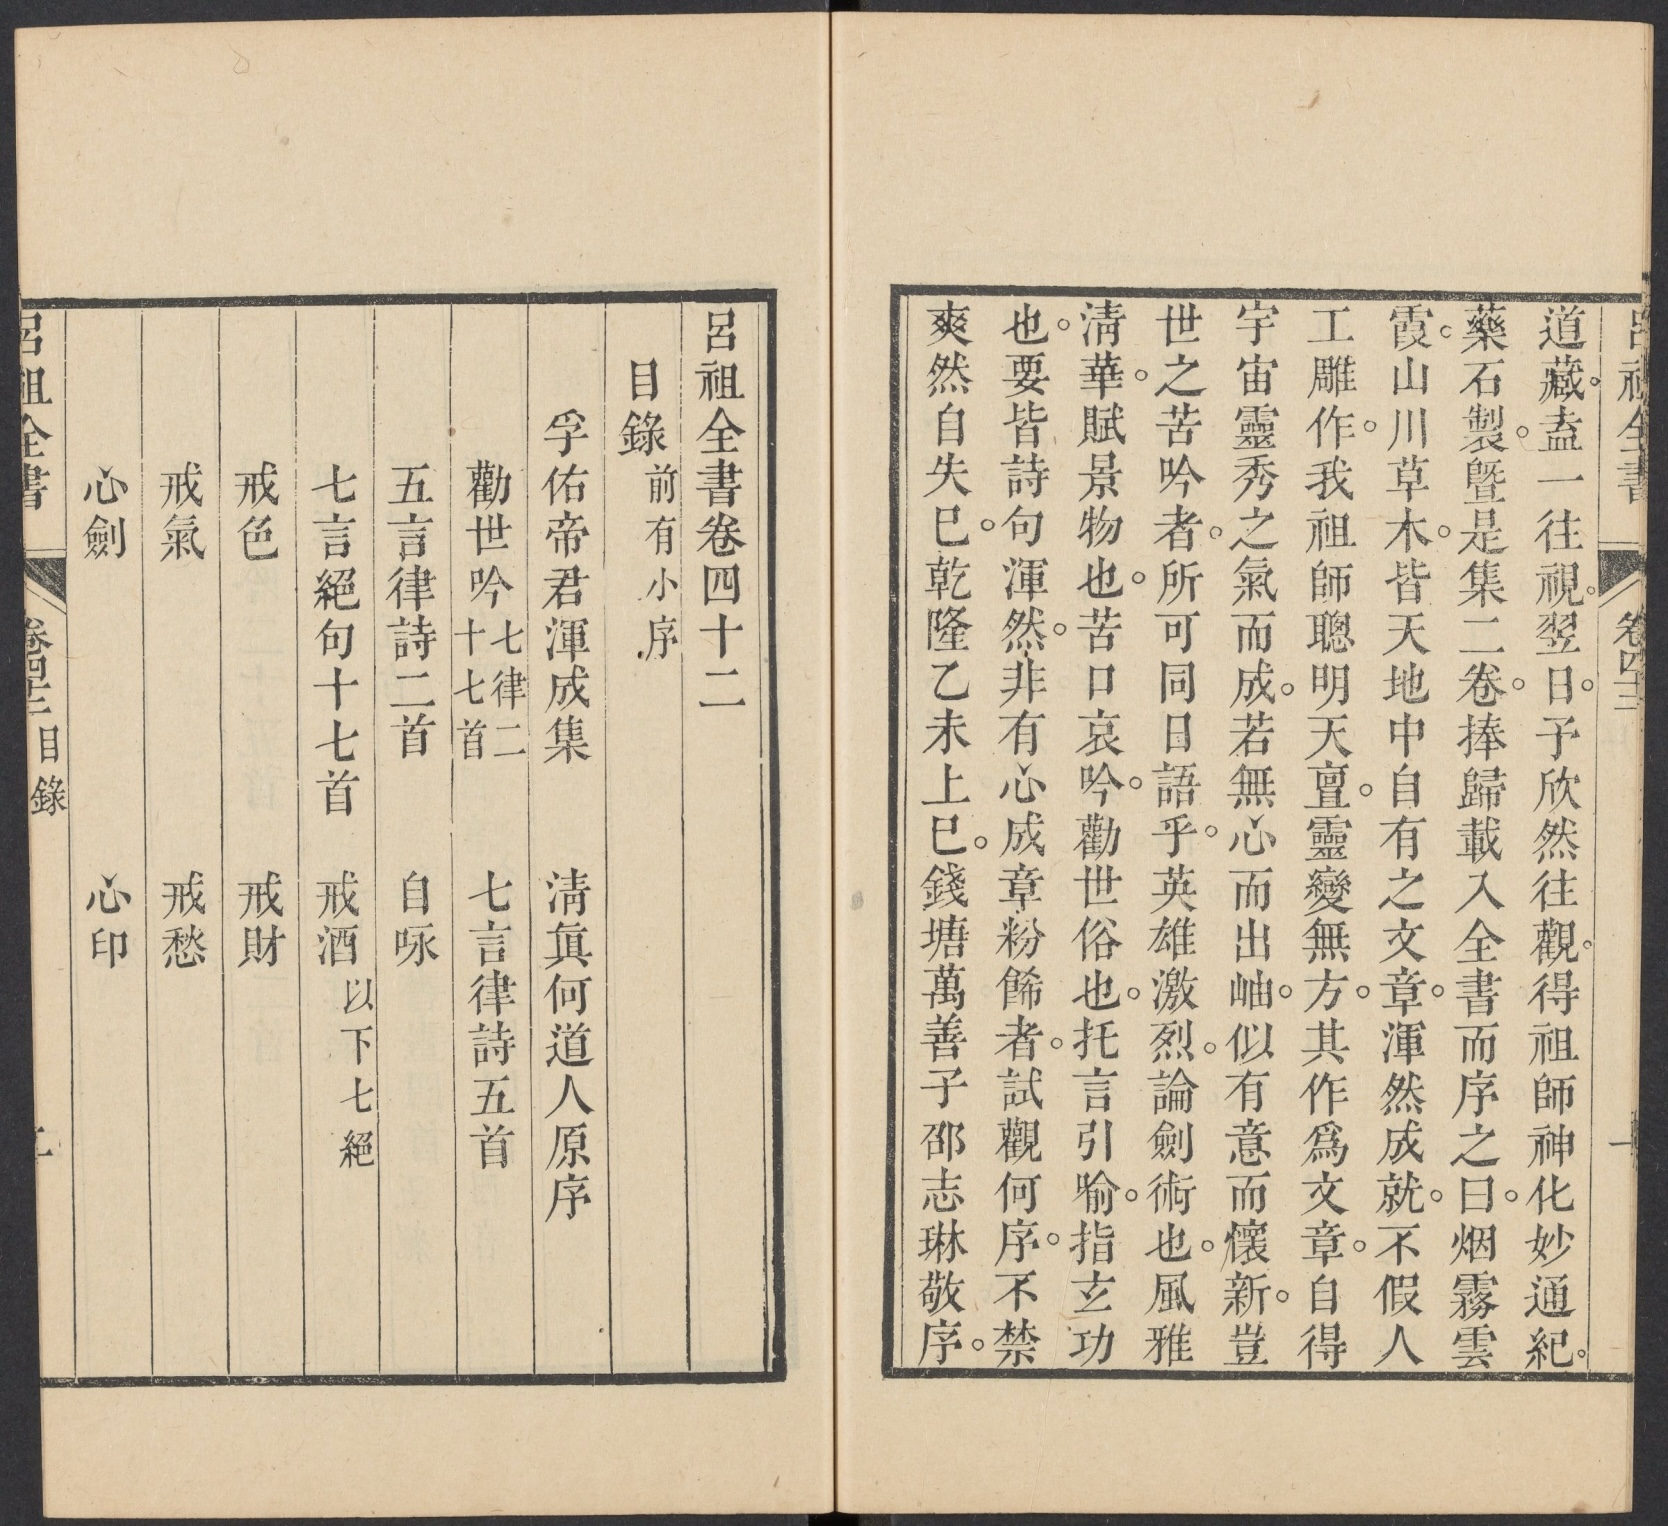 呂祖全書 卷四十二 一
道藏。盍一往視。翌日。予欣然往觀。得祖師神化妙通紀。
藥石製。曁是集二卷。捧歸載入全書而序之曰。烟霧雲
霞。山川草木。皆天地中自有之文章。渾然成就。不假人
工雕作。我祖師聰明天亶。靈變無方。其作爲文章。自得
宇宙靈秀之氣而成。若無心而出岫。似有意而懷新。豈
世之苦吟者。所可同日語乎。英雄激烈。論劍術也。風雅
淸華。賦景物也。苦口哀吟。勸世俗也。托言引喻。指玄功
也。要皆詩句渾然。非有心成章粉餙者。試觀何序。不禁
爽然自失已。乾隆乙未上巳。錢塘萬善子邵志琳敬序。
呂祖全書卷四十二
目錄 前有小序
孚佑帝君渾成集 淸眞何道人原序
勸世吟 七律二十七首 七言律詩五首
五言律詩二首 自咏
七言絕句十七首 戒酒 以下七絕
戒色 戒財
戒氣 戒愁
心劍 心印
呂祖全書 卷四十二 目錄 二